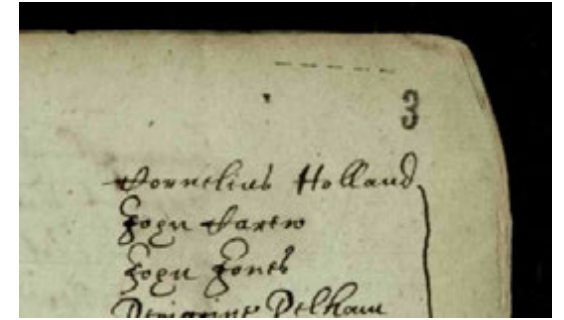 3
Cornelius Holland
John Carew
John Jones
Peregrine Pelham